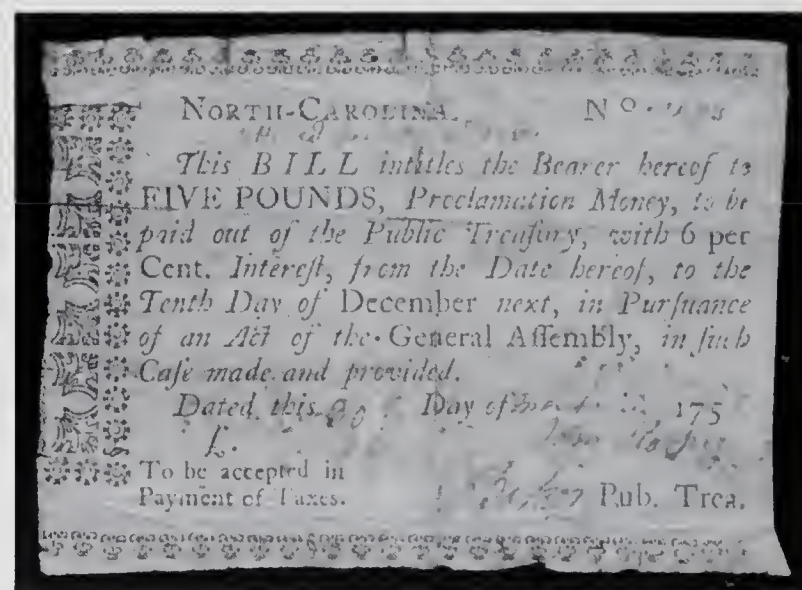 NORTH-CAROLINA. No.
This BILL intitles the Bearer hereof to
FIVE POUNDS, Proclamation Money, to be
paid out of the Public Treaſury, with 6 per
Cent. Intereſt, from the Date hereof, to the
Tenth Day of December next, in Purſuance
of an Act of the General Aſſembly, in ſuch
Caſe made and provided.
Dated this Day of 175
To be accepted in
Payment of Taxes.
Pub. Trea.